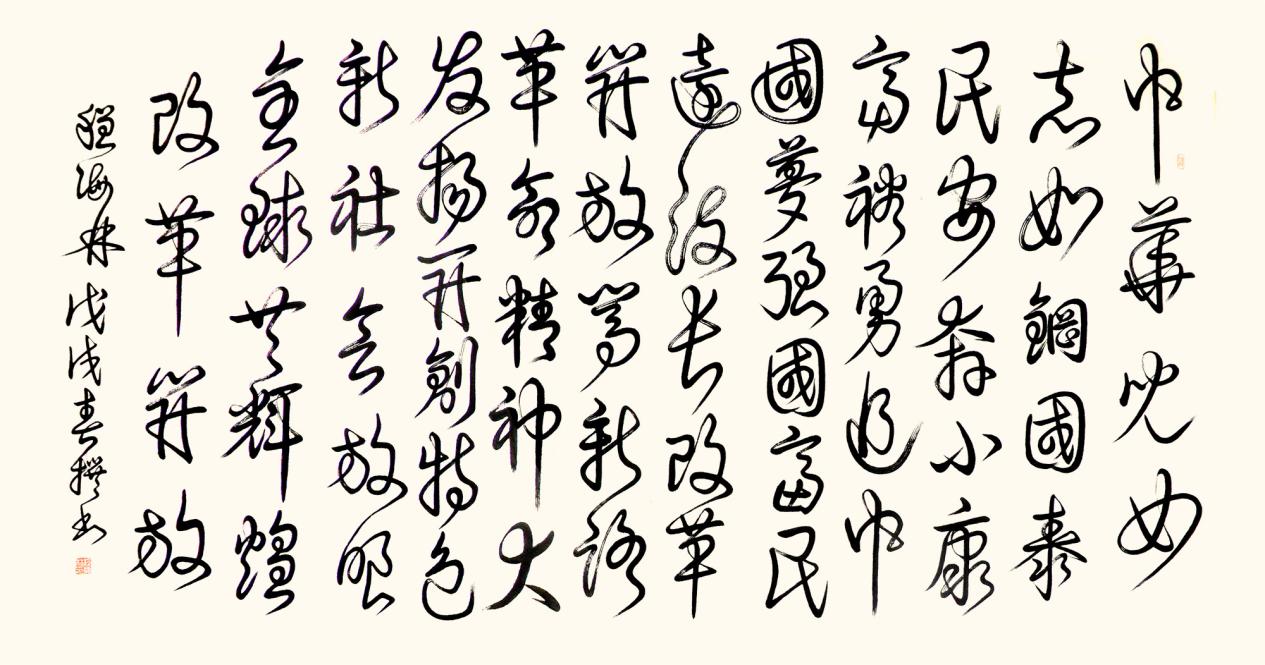 中華兒女
志如鋼國泰
民安奔小康
富裕勇追中
國夢强國富民
遠长改革
開放闖新路
革命精神大
发揚開創特色
新社会放眼
全球共輝煌
改革開放
海林戊戌春撰书